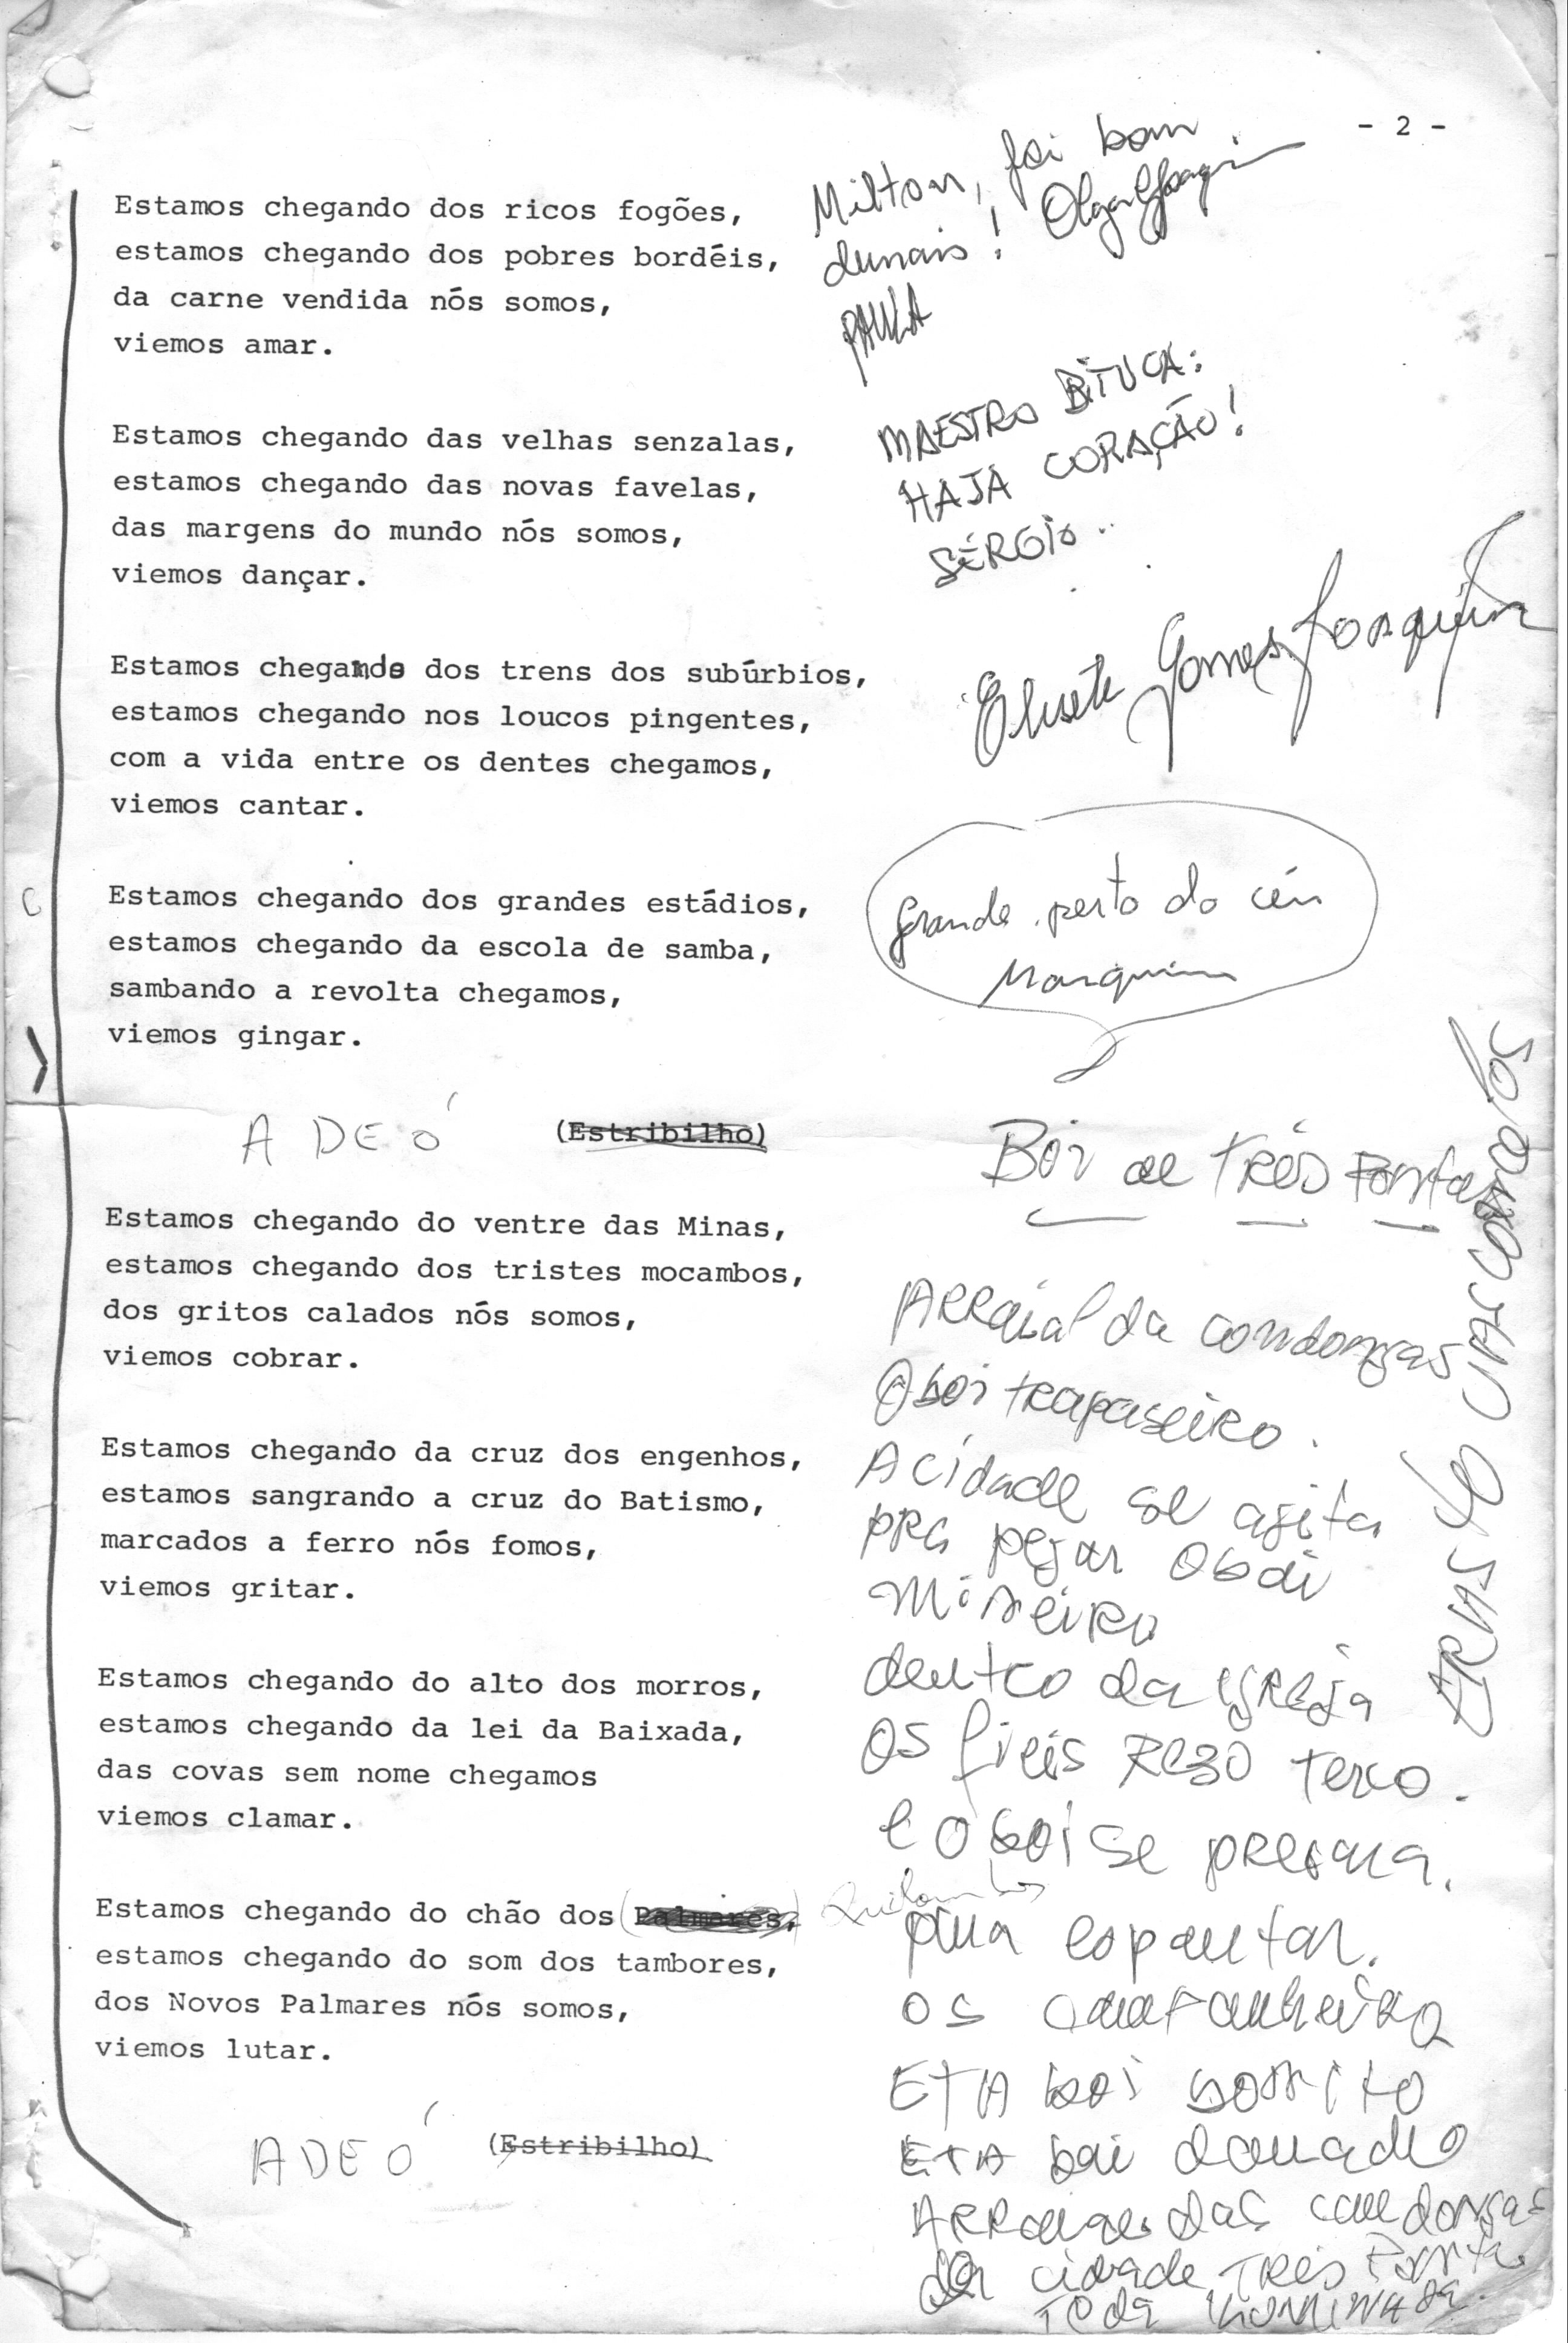 - 2 -
Estamos chegando dos ricos fogões,
estamos chegando dos pobres bordéis,
da carne vendida nós somos,
viemos amar.
Estamos chegando das velhas senzalas,
estamos chegando das novas favelas,
das margens do mundo nós somos,
viemos dançar.
Estamos chegando dos trens dos subúrbios,
estamos chegando nos loucos pingentes,
com a vida entre os dentes chegamos,
viemos cantar.
Estamos chegando dos grandes estádios,
estamos chegando da escola de samba,
sambando a revolta chegamos,
viemos gingar.
A DE Ó (Estribilho)
Estamos chegando do ventre das Minas,
estamos chegando dos tristes mocambos,
dos gritos calados nós somos,
viemos cobrar.
Estamos chegando da cruz dos engenhos,
estamos sangrando a cruz do Batismo,
marcados a ferro nós fomos,
viemos gritar.
Estamos chegando do alto dos morros,
estamos chegando da lei da Baixada,
das covas sem nome chegamos
viemos clamar.
Estamos chegando do chão dos (Palmares,) Quilombos
estamos chegando do som dos tambores,
dos Novos Palmares nós somos,
viemos lutar.
A DE Ó (Estribilho)
Milton, foi bom
demais! Olga
PAULA
MAESTRO BITUCA:
HAJA CORAÇÃO!
SÉRGIO..
Elisete Gomes Joaquim
Grande perto do céu
Marquim
Boi de três Pontas
ARRaial da condongas
O boi trapaseiro.
A cidade se agita
pra pegar o boi
Mineiro
dentro da igreja
os fieis Rezo terco.
e o boi se
para espantar.
os
ETA boi bonito
ETA boi danado
das condongas
da cidade TRÊS Ponta
TODA